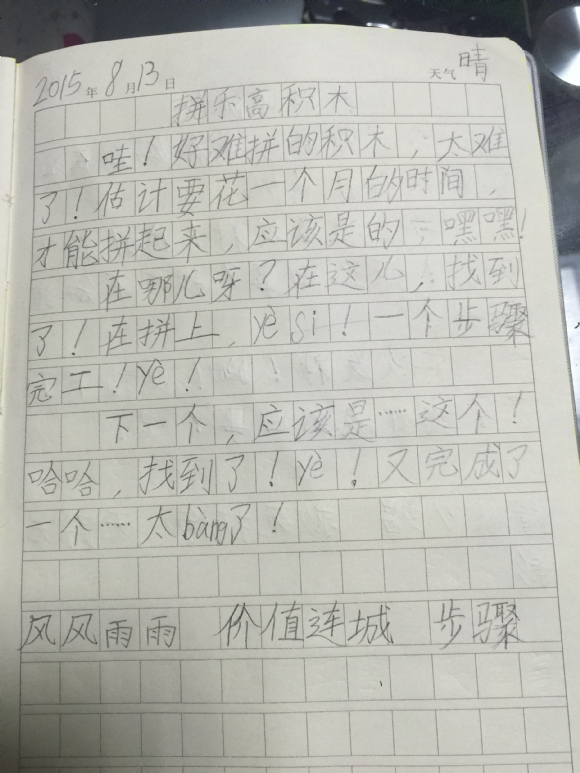 2015年8月13日 天气 晴
拼乐高积木
哇！好难拼的积木，太难
了！估计要花一个月的时间，
才能拼起来，应该是的，嘿嘿！
在哪儿呀？在这儿，找到
了！在拼上，yè si！一个步骤
完工！yè！
下一个，应该是……这个！
哈哈，找到了！yè！又完成了
一个……太bàng了！
风风雨雨 价值连城 步骤